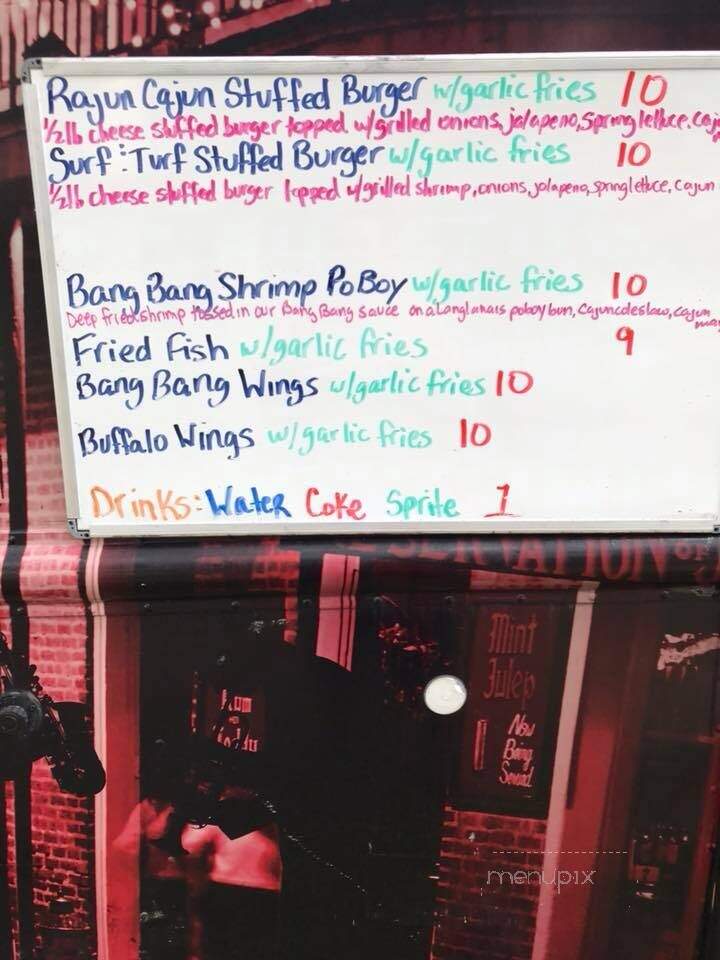 Rajun Cajun Stuffed Burger w/garlic fries 10
1/2lb cheese stuffed burger topped w/grilled onions, jalapeno, spring lettuce. Caj
Surf : Turf Stuffed Burger w/garlic fries 10
1/2lb cheese stuffed burger topped w/grilled shrimp, onions, jalapeno, spring lettuce, cajun
Bang Bang Shrimp Po Boy w/garlic fries 10
Deep fried shrimp tossed in our Bang Bang sauce on a Longlanais poboy bun, Cajun coleslaw, cajun
may
Fried Fish w/garlic fries 9
Bang Bang Wings w/garlic fries 10
Buffalo Wings w/garlic fries 10
Drinks: Water Coke Sprite 1
Mint
Julep
Now
Being
Served
menupix